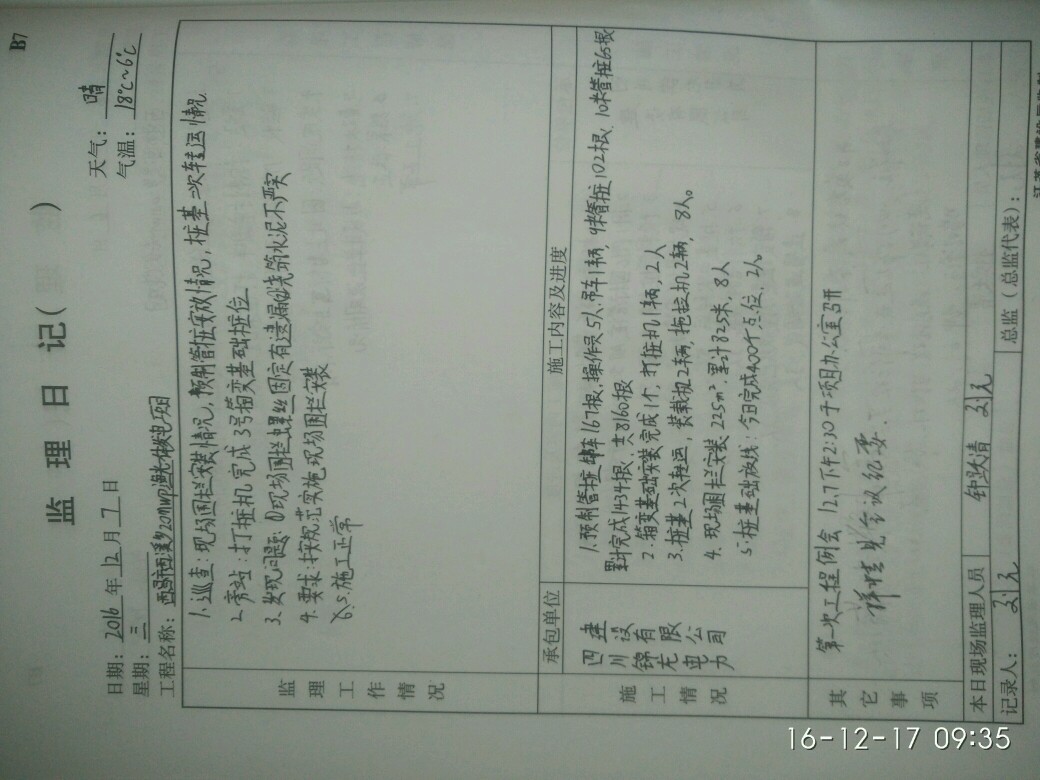 B7
监 理 日 记( )
日期: 2016 年 12 月 7 日
天气: 晴
星期: 三
气温: 18℃~6℃
工程名称: 西昌市西溪乡20MWP渔光伏发电项目
监理工作情况
1. 巡查:现场围栏安装情况,预制管桩安放情况,桩基二次转运情况.
2. 旁站:打桩机完成3号箱变基础桩位.
3. 发现问题:①现场围栏螺丝固定有遗漏 ②浇筑水泥不严实
4. 要求:按规范实施现场围栏安装
5. 施工正常
承包单位
施工内容及进度
施工情况
四川
建设有限公司
1. 预制管桩 167根,操作员5人.吊车1辆,9米管桩102根,10米管桩65根
累计完成1434根、共8160根
2. 箱变基础安装完成1个,打桩机1辆,2人
3. 桩基2次转运,装载机2辆,拖拉机2辆,8人。
4. 现场围栏安装225m².累计825米,8人
5. 桩基础放线:今日完成400个点位,2人。
其它事项
第一次工程例会 12.7下午2:30于项目办公室召开
详情见会议纪要.
本日现场监理人员
钟
记录人:
总监(总监代表):
16-12-17 09:35